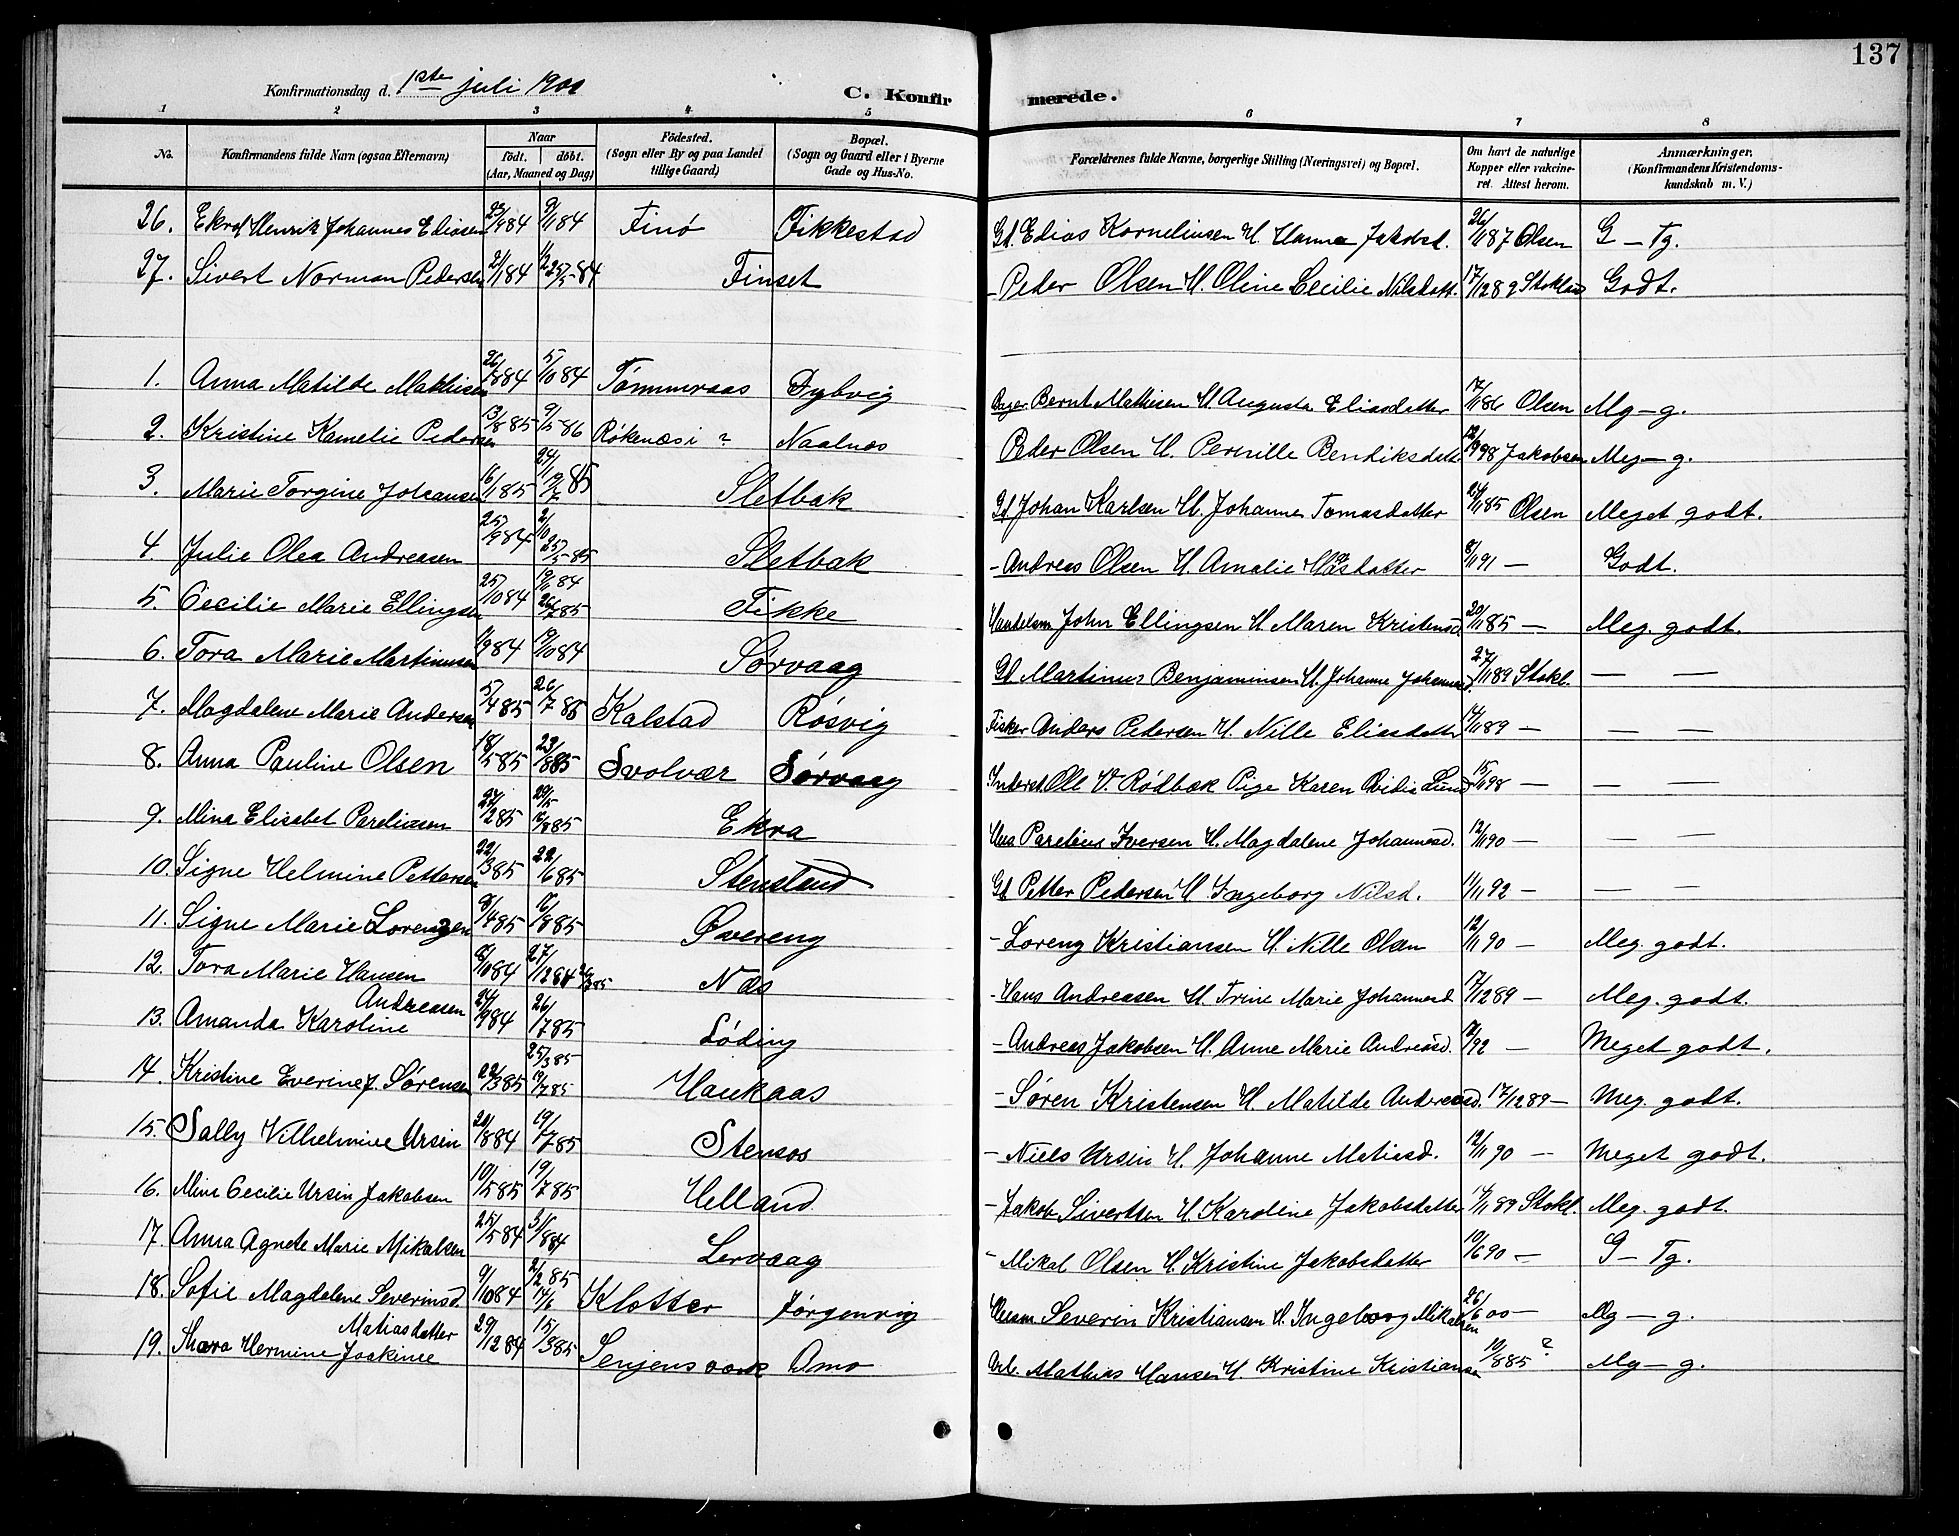 137
Konfirmationsdag d. 1ste juli 1900
C. Konfirmerede.
1 2 3 4 5 6 7 8
No.
Konfirmandens fulde Navn (ogsaa Efternavn)
Naar
födt. döbt.
(Aar, Maaned og Dag)
Födested.
(Sogn eller By og paa Landet
tillige Gaard)
Bopæl.
(Sogn og Gaard eller i Byerne
Gade og Hus-No.
Forældrenes fulde Navne, borgerlige Stilling (Næringsvei) og Bopæl.
Om havt de naturlige
Kopper eller vakcine-
ret. Attest herom.
Anmærkninger.
(Konfirmandens Kristendoms-
kundskab m. V.)
26. Henrik Johannes Eliasen Finö Fikkestad Gd. Edias Kornelinsen H. Hanna Jakobsd. 26/1187 Olsen G – Tg.
27. Sivert Norman Pedersen 21/184 Finset – Peder Olsen H. Oline Cecilie Nilsdatt. 17/1289 Godt.
1. Anna Matilde Mathisen 26/884 5/1084 Tömmeraas Dybvig Bernt Mathisen H. Augusta Eliasdatter 17/186 Olsen Mg – g.
2. Kristine Kamelie Pedersen 13/885 9/586 Rökenæs i ? Naalnæs Peder Olsen H. Pernille Bendiksdatt. 12/998 Jakobsen Mg – g.
3. Marie Torgine Johansen 16/185 Sletbak Gd Johan Karlsen H. Johanne Tomasdatter 24/1185 Olsen Meget godt.
4. Julie Olea Andreasen 25/984 Sletbak – Andreas Olsen H. Amalie 8/1191 – Godt.
5. Cecilie Marie Ellingsen 25/1084 26/785 Fikke John Ellingsen H. Maren Kristensd. 20/1185 – Meg. godt.
6. Tora Marie Martinusen 19/1084 Sørvaag Gd Martinus Benjaminsen H. Johanne 27/1189 Stokl. — —
7. Magdalene Marie Andersen 5/485 26/785 Kalstad Røsvig Fisker Anders Pedersen H. Nille Eliasdatter 17/1189 – — —
8. Anna Pauline Olsen 18/585 23/885 Svolvær Sørvaag Inderst. Ole Rødbæk Pige Karen Lund 15/1198 – — —
9. Mina Elisabet Pareliusen 27/285 Ekra Parelius Iversen H. Magdalene Johannesd. 12/1190 – — —
10. Signe Helmine Pettersen 22/385 22/685 Stensland Gd Petter Pedersen H. Ingeborg Nilsd. 11/1192 – — —
11. Signe Marie Lorenzen 8/485 16/885 Øvereng – Lorenz Kristiansen H. Nille Olsen 12/1190 – Meg. godt.
12. Tora Marie Hansen 8/1084 27/1284 Næs – Hans Andreasen H. Trine Marie Johannesd 17/1289 – Meg. godt.
Andreasen
13. Amanda Karoline 24/984 26/785 Løding – Andreas Jakobsen H. Anne Marie Andreasd. – Meget godt.
14. Kristine Everine J. Sørensen 22/385 25/385 19/785 Haukaas – Søren Kristensen H. Matilde Andreasd. 17/1289 – Meg. godt.
15. Sally Vilhelmine Ursin 20/884 19/785 Stensos – Niels Ursin H. Johanne Matiasd. 12/1190 – Meget godt.
16. Mina Cecilie Ursin Jakobsen 10/585 19/785 Helland – Jakob Sivertsen H. Karoline Jakobsdatter 14/1189 Stokl. Meg. godt.
17. Anna Agnete Marie Mikalsen 25/584 31/884 Lervaag – Mikal Olsen H. Kristine Jakobsdatter 10/690 – G – Tg.
18. Sofie Magdalene Severinsd. 9/1084 2/285 14/6 Klotter Jørgenvig Severin Kristiansen H. Ingeborg Mikalsen 26/600 – Mg – g.
Matiasdatter
19. Hermine Joakine 29/1284 15/385 Amo Arb. Mathias Hansen H. Kristine Kristiansen 10/885 ? Mg – g.